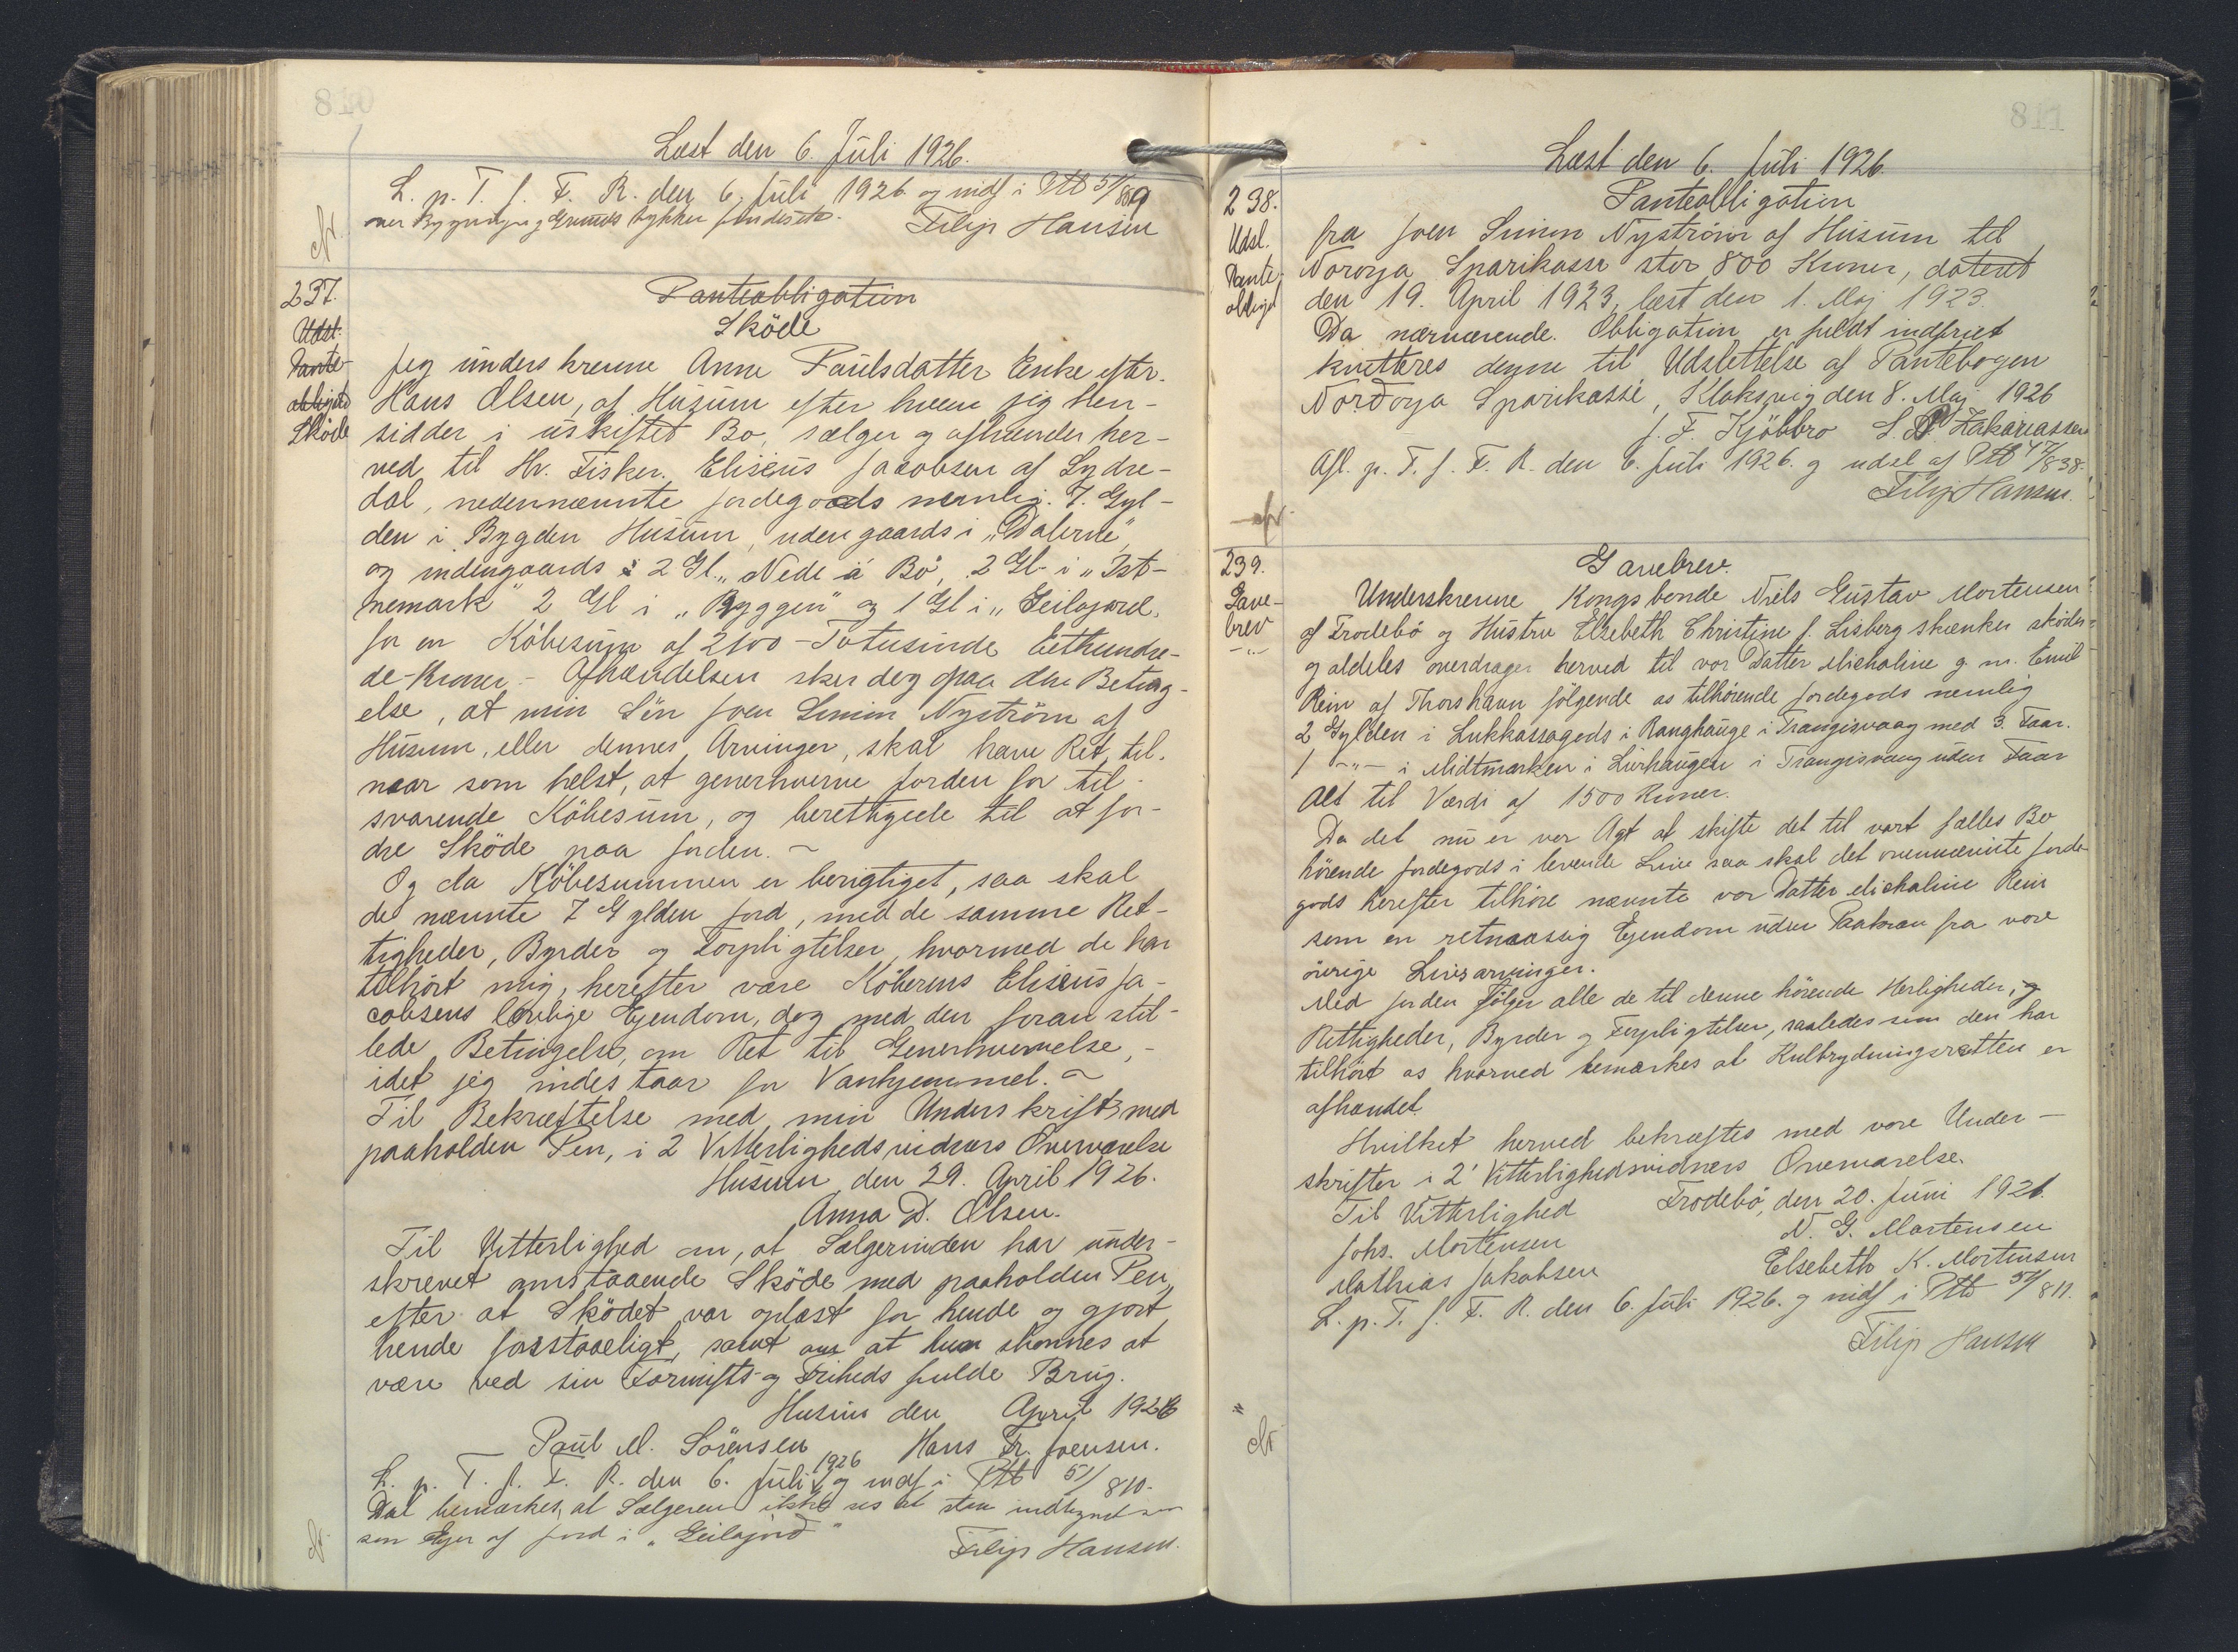 810
Læst den 6. Juli 1926.
L. p. T. f. F. R. den 6. Juli 1926 og indf i Ptb 51/809
Filip Hansen
237.
Udsl.
Pante-
obligati
Sköde
Panteobligation
Sköde
Jeg underskrevne Anne Paulsdatter Enke efter
Hans Olsen, af Húsum efter hvem jeg hen-
sidder i uskiftet Bo, sælger og afhænder her-
ved til Hr. Fisker. Eliséus Jacobsen af Sydre-
dal, nedennævnte Jordegods nemlig. 7. Gyl-
den i Bygden Húsum, udengaards i „Dalerne"
og indengaards i 2 Gl. „Nede á Bö", 2 Gl. i „Ist-
nemark" 2 Gl i „Byggen" og 1 Gl i „Geilajord,
for en Köbesum af 2100 - Totusinde Eethundre-
de - Kroner. - Afhændelsen sker dog paa den Beting-
else, at min Sön Joen Simin Nyström af
Húsum, eller dennes Arvinger, skal have Ret, til.
naar som helst, at generhverve Jorden for til-
svarende Köbesum, og berettigede til at for-
dre Sköde paa Jorden. ~
Og da Köbesummen er berigtiget, saa skal
de nævnte 7 Gylden Jord, med de samme Ret-
tigheder, Byrder og Forpligtelser, hvormed de har
tilhört mig, herefter være Köberens Eliséus Ja-
cobsens lovlige Ejendom, dog med den foran stil-
lede Betingelse, om Ret til Generhvervelse, -
idet jeg indestaar for Vanhjemmel. ~
Til Bekræftelse med min Underskrift med
paaholden Pen, i 2 Vitterlighedsvidners Overværelse
Húsum den 29. April 1926.
Anna D. Olsen.
Til Vitterlighed om, at Sælgerinden har under-
skrevet omstaaende Sköde med paaholden Pen,
efter at Sködet var oplæst for hende og gjort
hende forstaaeligt, samt om at hun skönnes at
være ved sin Fornufts- og Friheds fulde Brug.
Húsum den April 1926
Poul M. Sörensen Hans Fr. Joensen.
L. p. T. f. F. R. den 6. Juli 1926 og indf i Ptb 51/810.
Det bemærkes, at Sælgeren ikke ses at staa indtegnet
som Ejer af Jord i „Geilajord"
Filip Hansen.
811
Læst den 6. Juli 1926.
238.
Udsl.
Pante-
obligat
Panteobligation
fra Joen Simin Nyström af Húsum til
Norðoya Sparikassa stor 800 Kroner, dateret
den 19. April 1923, læst den 1. Maj 1923.
Da nærværende. Obligation er fuldt indfriet
kvitteres denne til Udslettelse af Pantebogen
Norðoya Sparikassi, Klaksvig den 8. Maj 1926
J. F. Kjölbro S. P. Zakariassen
Afl. p. T. f. F. R. den 6. Juli 1926. og udsl af Ptb 47/838.
Filip Hansen.
239.
Gave-
brev
-„-
Gavebrev.
Underskrevne Kongsbonde Niels Gústav Mortensen
af Frodebö og Hustru Elsebeth Christine f. Lisberg skænker sköder
og aldeles overdrager herved til vor Datter Michaline g. m. Emil
Rein af Thorshavn fölgende os tilhörende Jordegods nemlig
2 Gylden i Lukkassagods i Ranghauge i Trangisvaag med 3. Faar.
1 -„- i Midtmarken i Lirhaugen i Trangisvaag uden Faar
Alt til Værdi af 1500 Kroner.
Da det nu er vor Agt at skifte det til vort fælles Bo
hörende Jordegods i levende Live saa skal det ovennævnte Jorde-
gods herefter tilhöre nævnte vor Datter Michaline Rein
som en retmæssig Ejendom uden Paakrav fra vore
övrige Livsarvinger.
Med Jorden fölger alle de til denne hörende Herligheder, og
Rettigheder, Byrder og Forpligtelser, saaledes som den har
tilhört os hvorved bemærkes at Kulbrydningsretten er
afhændet.
Hvilket herved bekræftes med vore Under-
skrifter i 2 Vitterlighedsvidners Overværelse.
Til Vitterlighed Frodebö, den 20. Juni 1926.
Johs. Mortensen N. G. Mortensen
Mathias Jakobsen Elsebeth K. Mortensen
L. p. T. f. F. R. den 6. Juli 1926. og indf i Ptb 51/811.
Filip Hansen